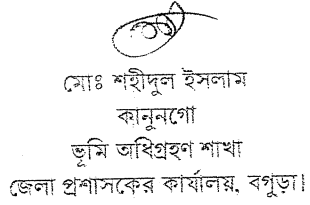 মোঃ শহীদুল ইসলাম
কানুনগো
ভূমি অধিগ্রহণ শাখা
জেলা প্রশাসকের কার্যালয়, বগুড়া।